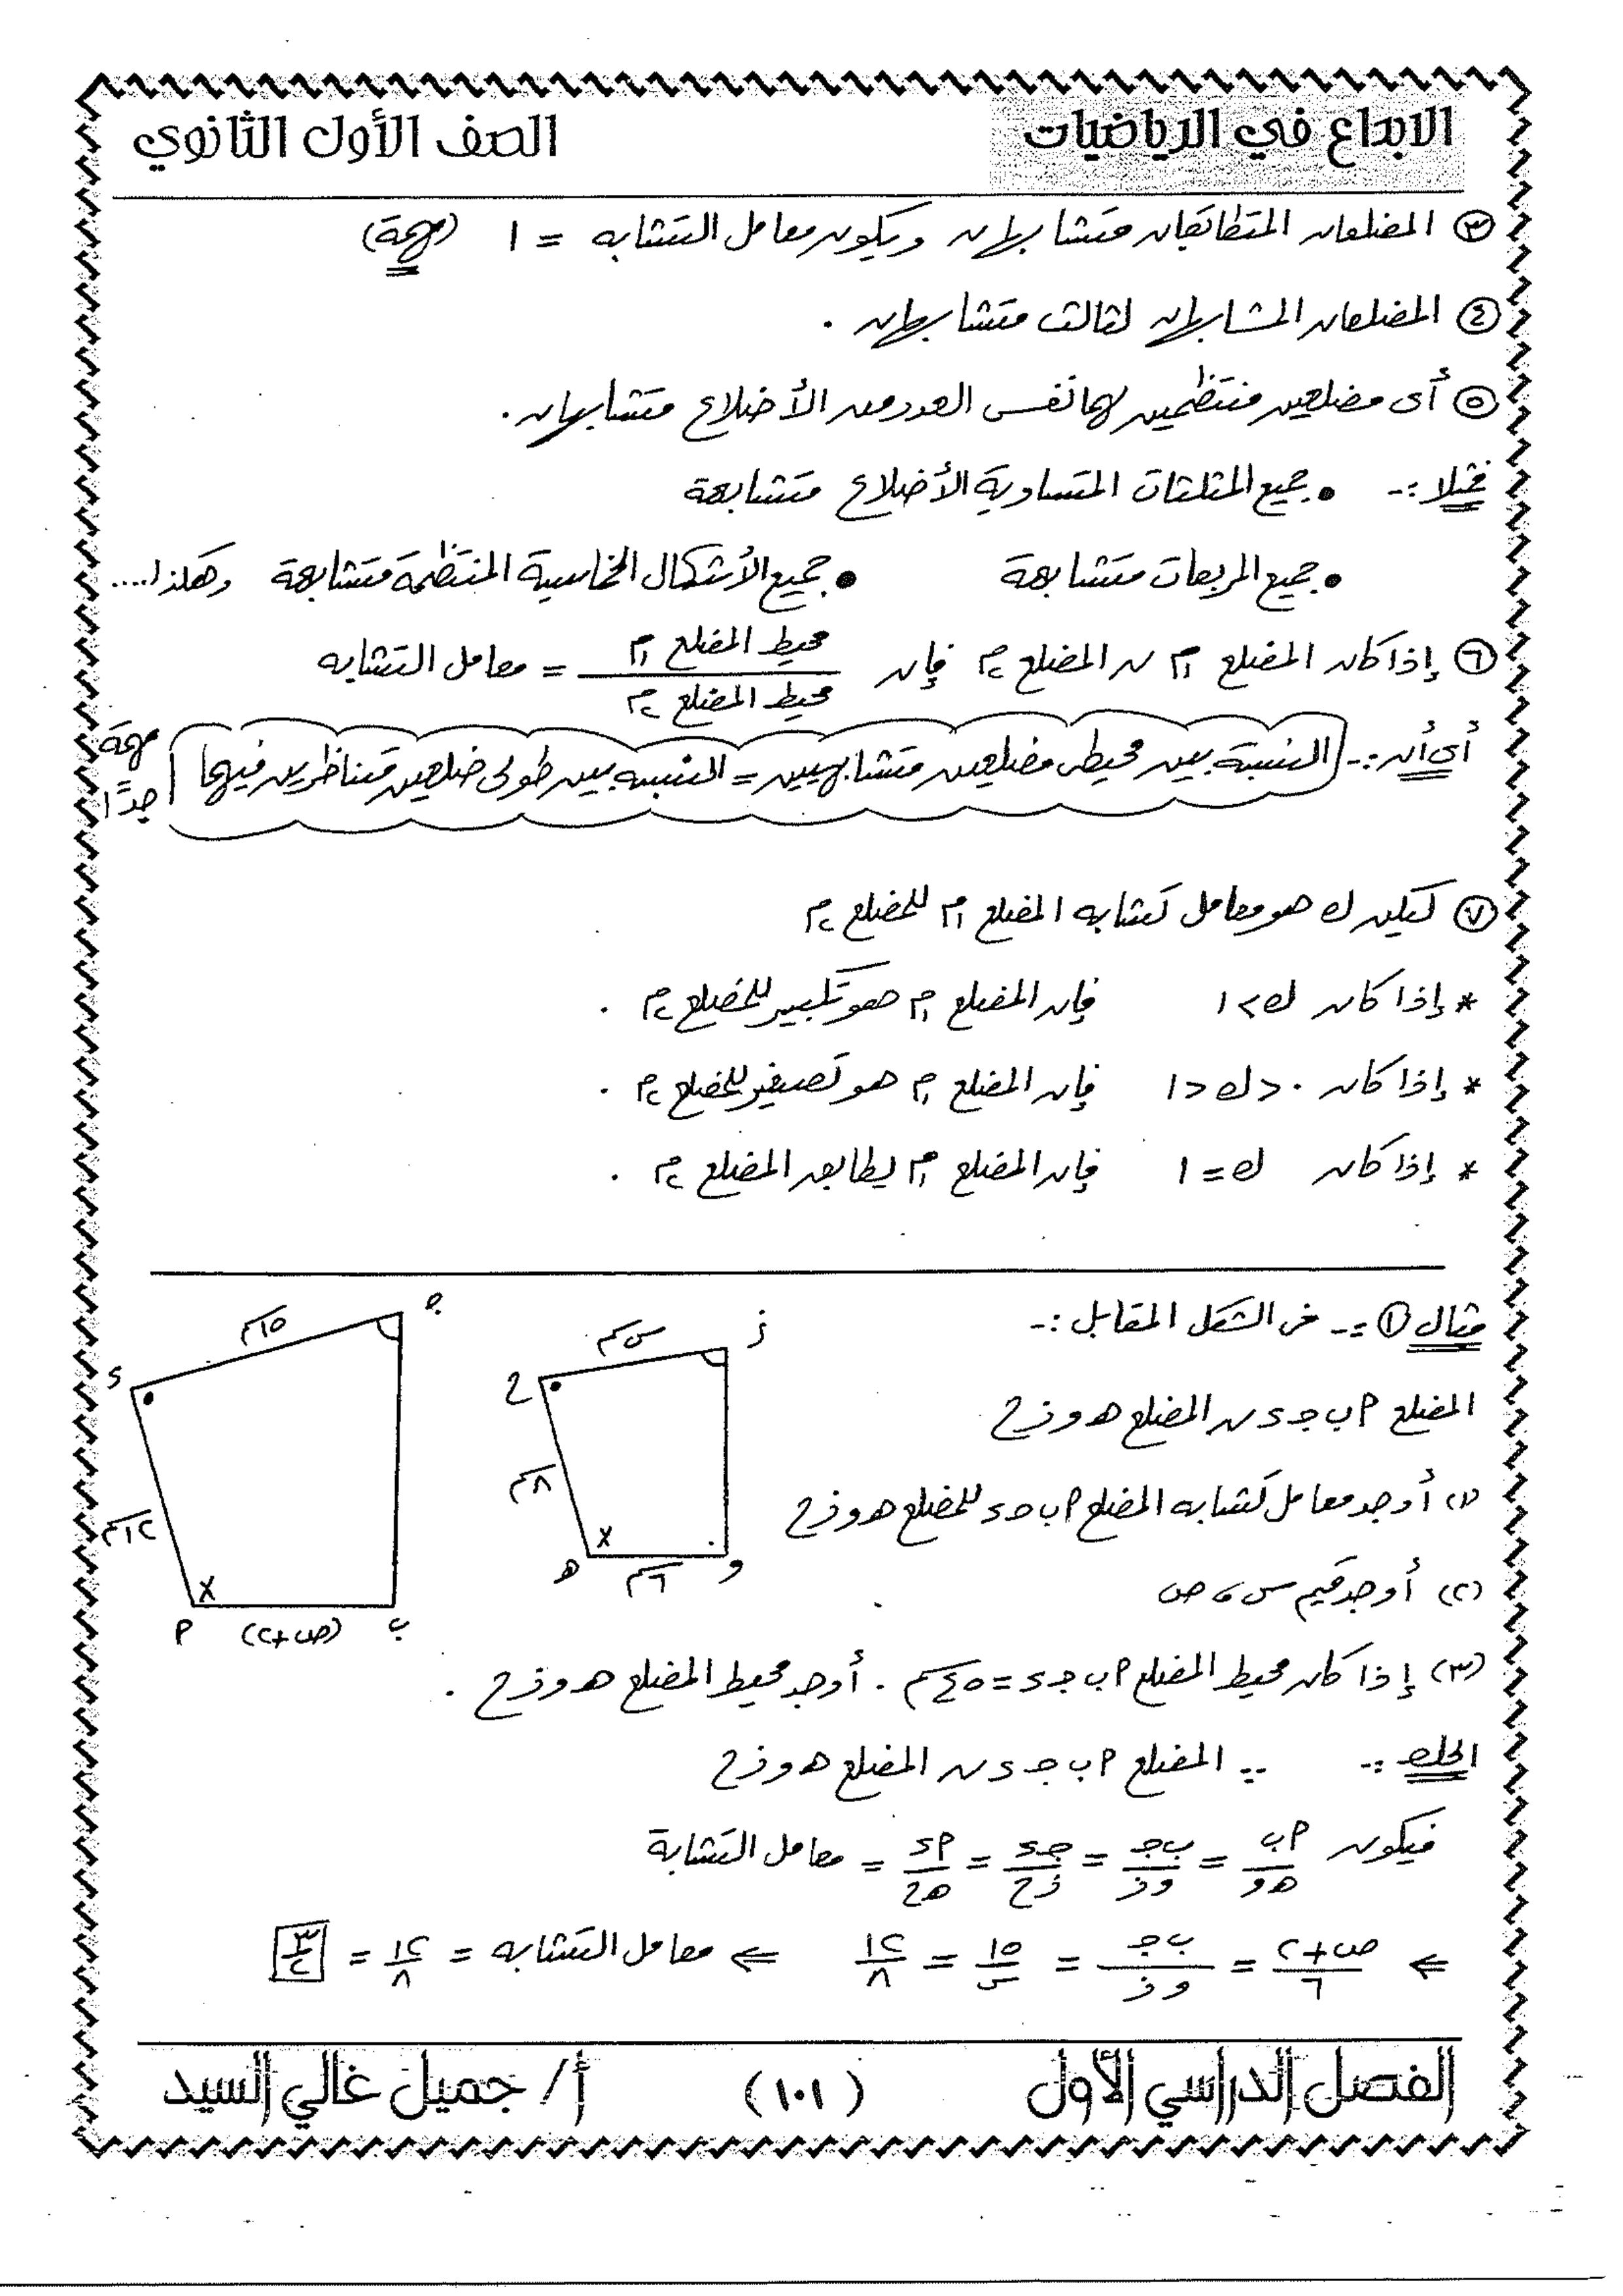 الابداع في الرياضيات
الصف الأول الثانوي
③ المضلعان المتطابقان متشابهان ويكون معامل التشابه = ١ (مهمة)
④ المضلعان المشابهان لثالث متشابهان .
⑤ أى مضلعين منتظمين لهما نفس العدد من الأضلاع متشابهان .
فمثلا :- • جميع المثلثات المتساوية الأضلاع متشابهة
• جميع المربعات متشابهة • جميع الأشكال الخماسية المنتظمة متشابهة وهكذا....
⑥ إذا كان المضلع م١ ~ المضلع م٢ فإن محيط المضلع م١ / محيط المضلع م٢ = معامل التشابه
أى أن :- النسبة بين محيطى مضلعين متشابهيين = النسبة بين طولى ضلعين متناظرين فيهما
مهمة جدًا
⑦ ليكن ك هو معامل تشابه المضلع م١ للمضلع م٢
* إذا كان ك > ١ فإن المضلع م١ هو تكبير للمضلع م٢ .
* إذا كان ٠ < ك < ١ فإن المضلع م١ هو تصغير للمضلع م٢ .
* إذا كان ك = ١ فإن المضلع م١ يطابق المضلع م٢ .
مثال ① :- فى الشكل المقابل :-
المضلع ٩ ب جـ ء ~ المضلع هـ و ز ح
(١) أوجد معامل تشابه المضلع ٩ ب جـ ء للمضلع هـ و ز ح
(٢) أوجد قيم س ، ص
(٣) إذا كان محيط المضلع ٩ ب جـ ء = ٤٥ سم . أوجد محيط المضلع هـ و ز ح .
جـ
١٥ سم
ء
١٢ سم
٩
(ص+٢)
ب
ز
س سم
ح
٨ سم
هـ
٦ سم
و
الحل :- ∵ المضلع ٩ ب جـ ء ~ المضلع هـ و ز ح
فيكون ٩ب/هـ و = ب جـ/و ز = جـ ء/ز ح = ٩ء/هـ ح = معامل التشابة
⇐ ص+٢/٦ = ب جـ/و ز = ١٥/س = ١٢/٨ ⇐ معامل التشابه = ١٢/٨ = ٣/٢
الفصل الدراسي الأول
(١٠١)
أ/ جميل غالي السيد